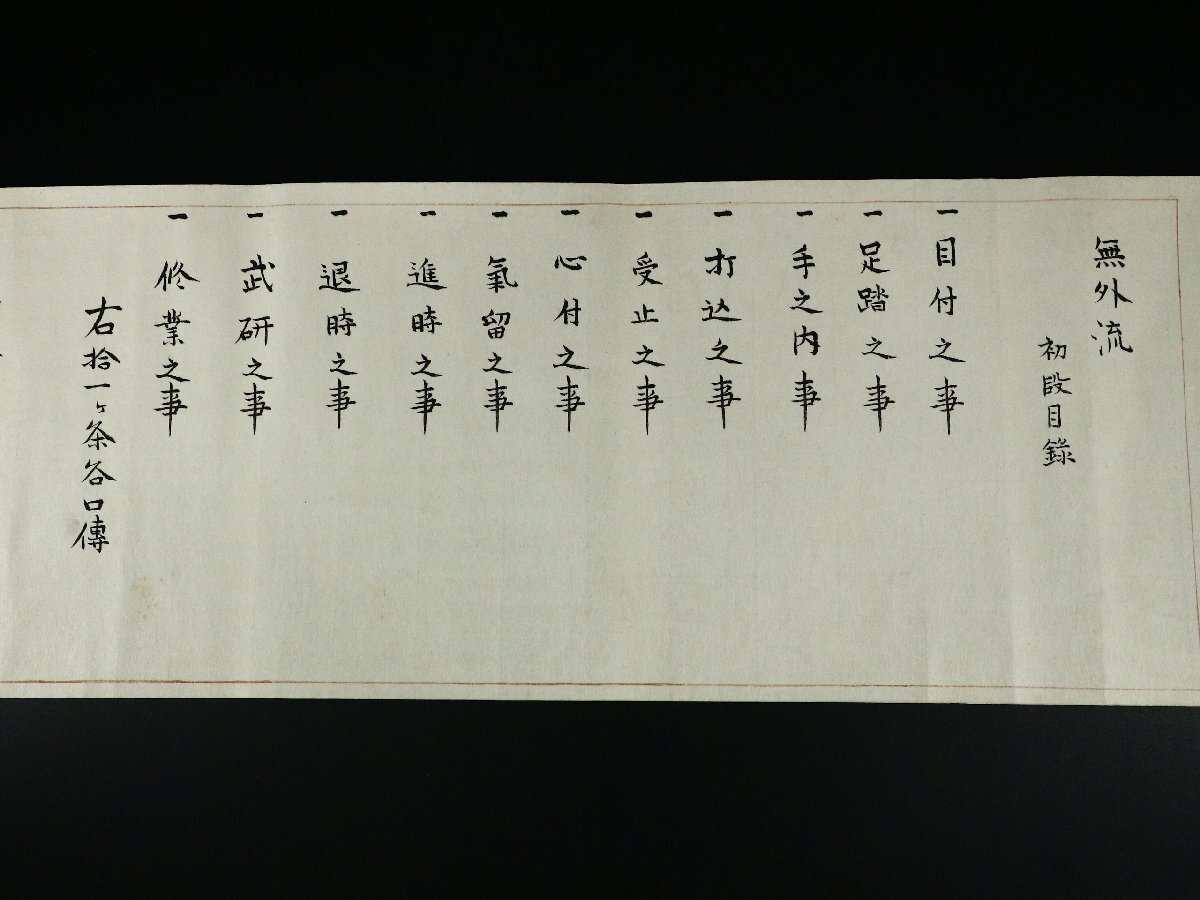 無外流
初段目錄
一 目付之事
一 足踏之事
一 手之内事
一 打込之事
一 受止之事
一 心付之事
一 氣留之事
一 進時之事
一 退時之事
一 武研之事
一 修業之事
右拾一ヶ条各口傳